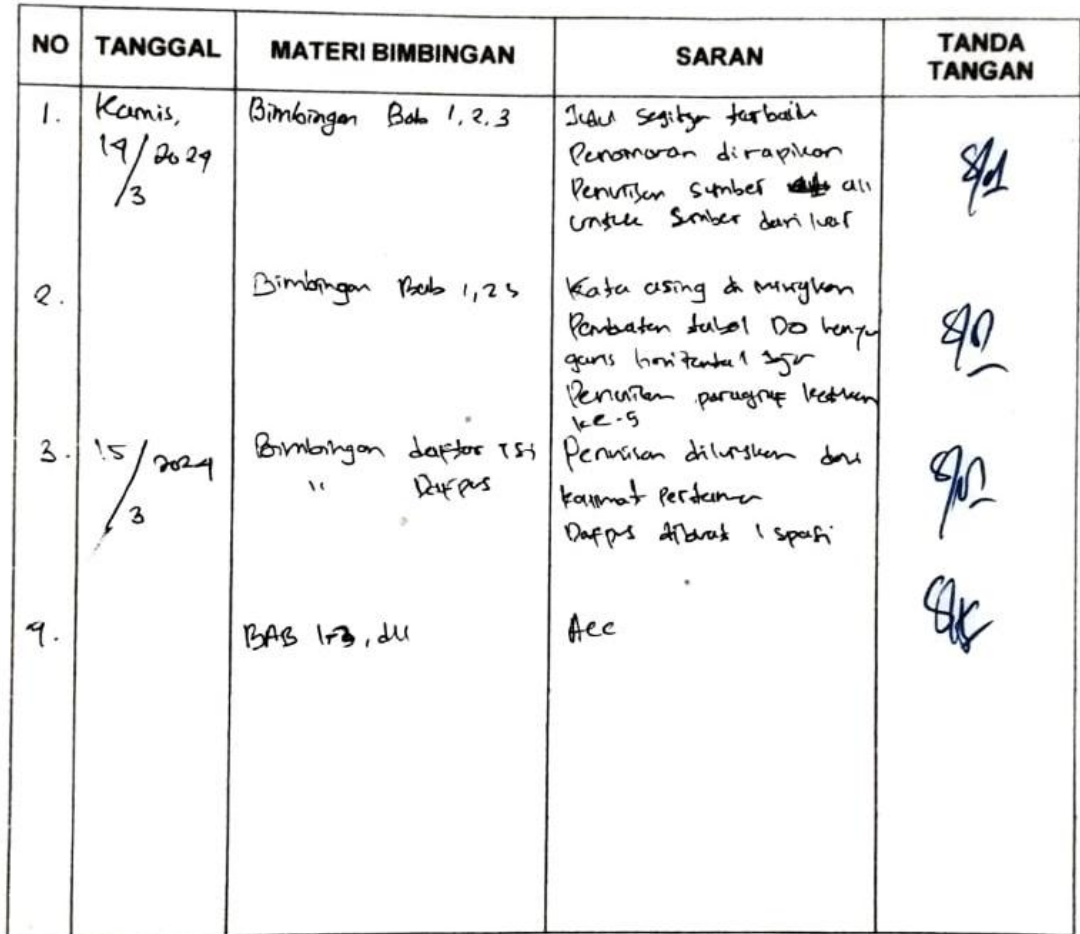 NO TANGGAL MATERI BIMBINGAN SARAN TANDA TANGAN
1. Kamis, Bimbingan Bab 1, 2, 3
14/3 2024
Penomoran dirapikan
Penulisan sumber
untuk sumber dari luar
2. Bimbingan Bab 1, 2 3 Kata asing di miringkan
Pembuatan tabel DO hanya
garis horizontal
Penulisan paragraf
ke-5
3. 15/3 2024 Bimbingan daftar isi Penulisan diluruskan dari
" Dafpus kalimat pertama
Dafpus dibuat 1 spasi
4. BAB 1-3, dll Acc